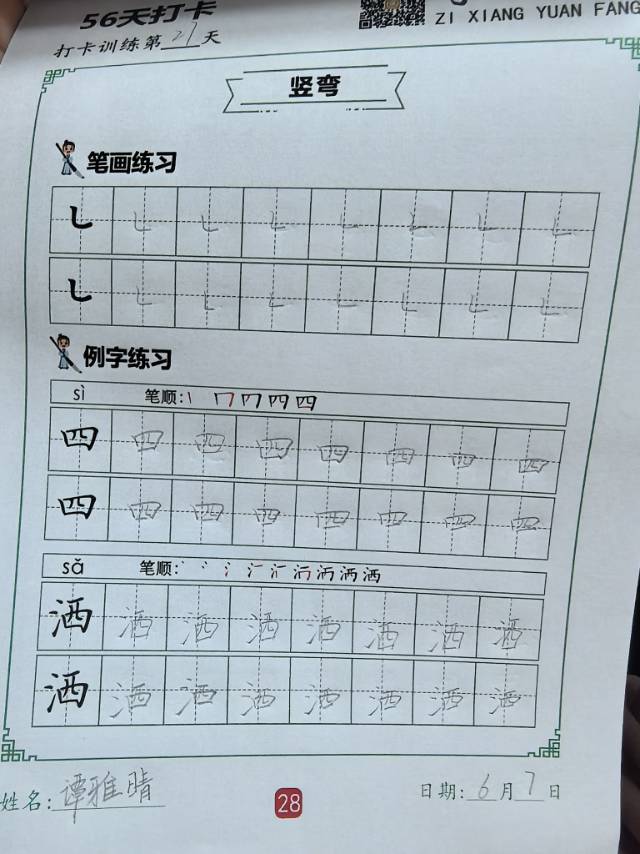 56天打卡
ZI XIANG YUAN FANG
打卡训练第21天
竖弯
笔画练习
例字练习
sì 笔顺: 四
四 四 四 四 四 四 四 四
四 四 四 四 四 四 四 四
sǎ 笔顺: 洒
洒 洒 洒 洒 洒 洒 洒 洒
洒 洒 洒 洒 洒 洒 洒 洒
姓名: 谭雅晴 28 日期: 6月7日